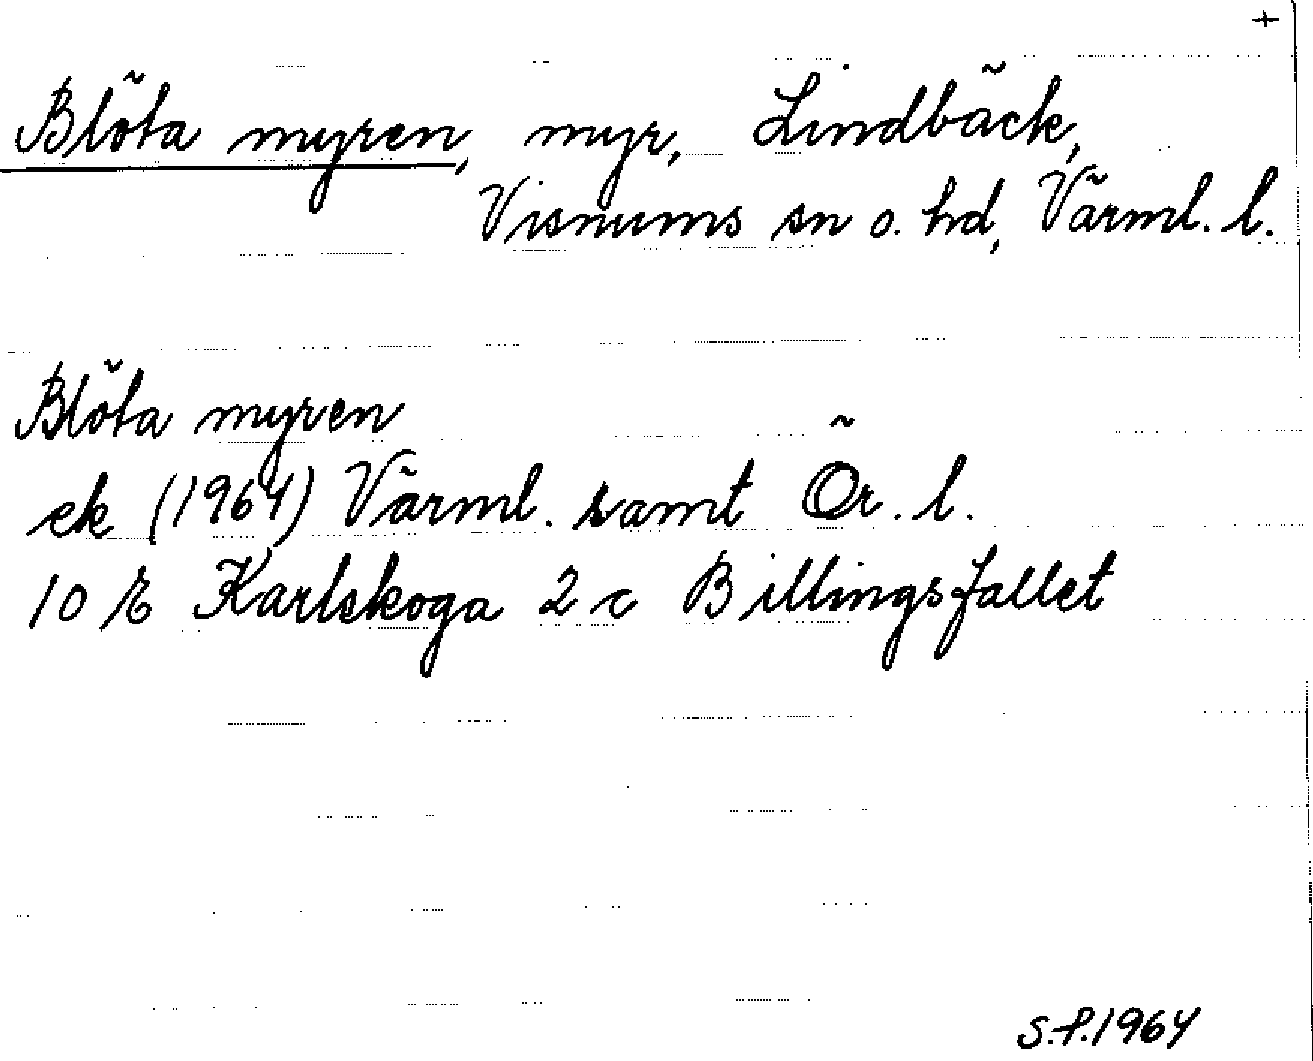 +
Blöta myren, myr, Lindbäck,
Visnums sn o. hd, Värml. l.
Blöta myren
ek (1964) Värml. samt Ör. l.
10 E Karlskoga 2 c Billingsfallet
S.P. 1964